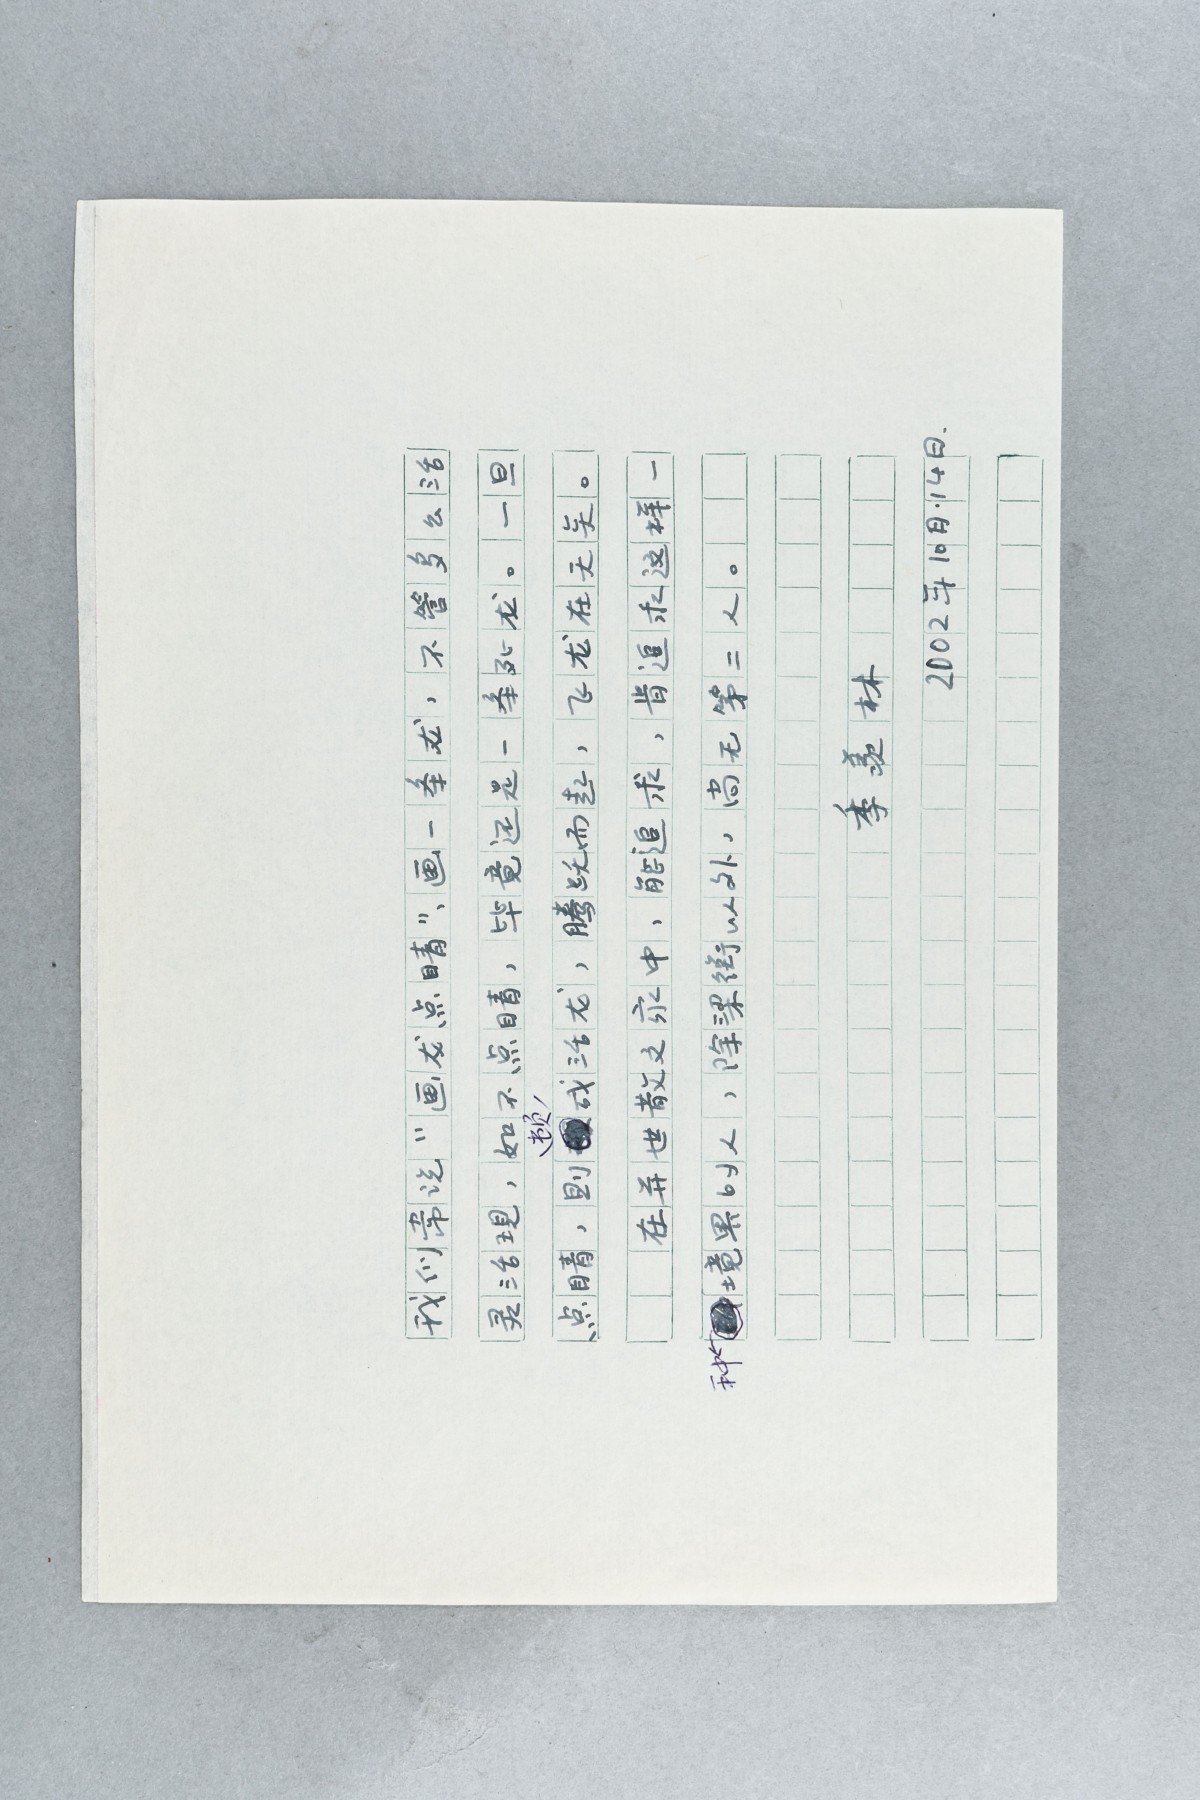 我们常说"画龙点睛"、画一条龙，不管多么活
灵活現，如不点睛，毕竟还是一条死龙。一旦
点睛，則顿成活龙，腾跃而起，飞龙在天矣。
在并世散文家中，能追求，肯追求这样一
种境界的人，除梁衡以外，尚无第二人。
季羡林
2002年10月·14日.